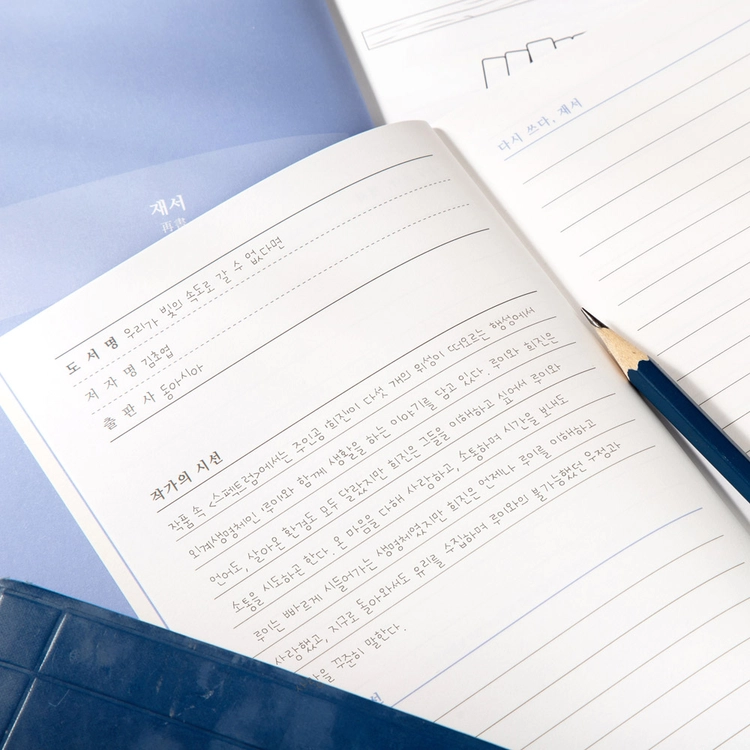 다시 쓰다, 재서
재서
再書
도 서 명 우리가 빛의 속도로 갈 수 없다면
저 자 명 김초엽
출 판 사 동아시아
작가의 시선
작품 속 <스펙트럼>에서는 주인공 '희진'이 다섯 개의 위성이 떠오르는 행성에서
외계생명체인 '루이'와 함께 생활을 하는 이야기를 담고 있다. 루이와 희진은
언어도, 살아온 환경도 모두 달랐지만 희진은 그들을 이해하고 싶어서 루이와
소통을 시도하곤 한다. 온 마음을 다해 사랑하고, 소통하며 시간을 보내도
루이는 빠르게 시들어가는 생명체였지만 희진은 언제나 루이를 이해하고
사랑했고, 지구로 돌아와서도 유리를 수집하며 루이와의 불가능했던 우정과
꾸준히 말한다.